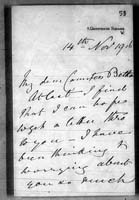 53
14th Nov 1916
My dear Countess B
At last I find
that I can hope
to get a letter thro
to you – I have
been thinking &
worrying about
you so much